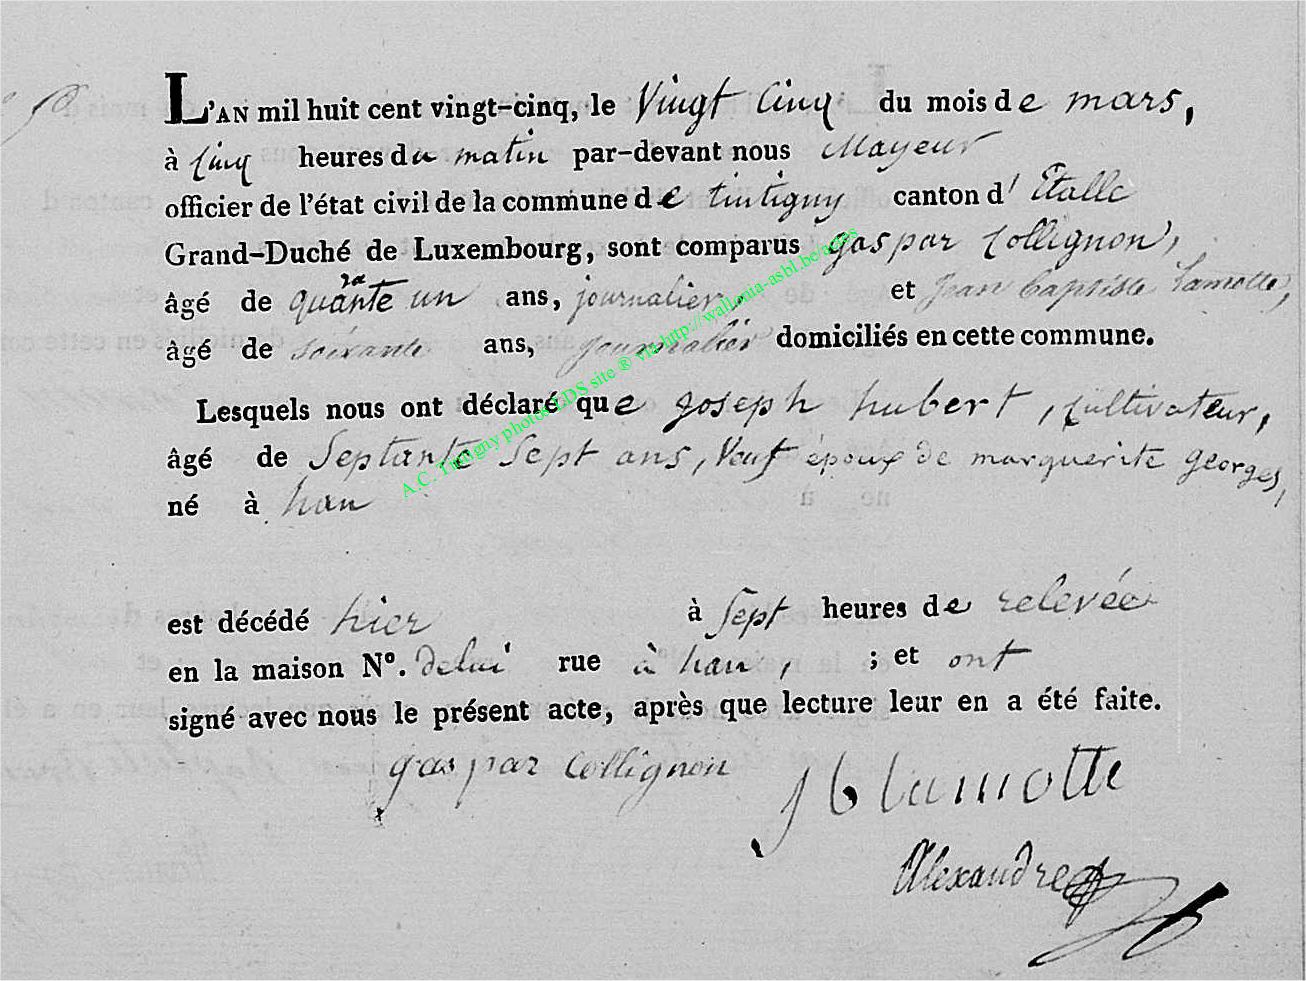 L'AN mil huit cent vingt-cinq, le Vingt Cinq du mois de mars,
à Cinq heures du matin par-devant nous Mayeur
officier de l'état civil de la commune de tintigny canton d'Étalle
Grand-Duché de Luxembourg, sont comparus gaspar Collignon,
âgé de quarante un ans, journalier, et Jean baptiste Lamotte,
âgé de soixante ans, journalier domiciliés en cette commune.
Lesquels nous ont déclaré que joseph hubert, Cultivateur,
âgé de Septante Sept ans, Veuf époux de marguerite georges,
né à han
est décédé hier à Sept heures de relevée
en la maison N°. delui rue à han, ; et ont
signé avec nous le présent acte, après que lecture leur en a été faite.
gaspar Collignon
J b lamotte
Alexandre
A.C. Tintigny photos LDS site ® via http://wallonia-asbl.be/actes